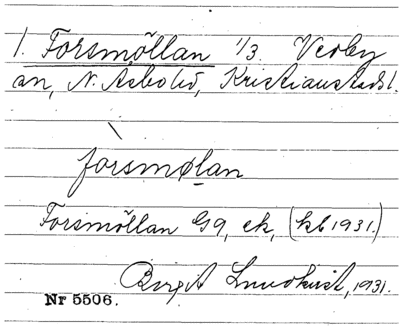 1. Forsmöllan 1/3 Verby
sn, N. Åsbo hd, Kristianstads l.
forsmølan
Forsmöllan G9, ek, (kb 1931.)
Birgit Lundkvist, 1931.
Nr 5506.